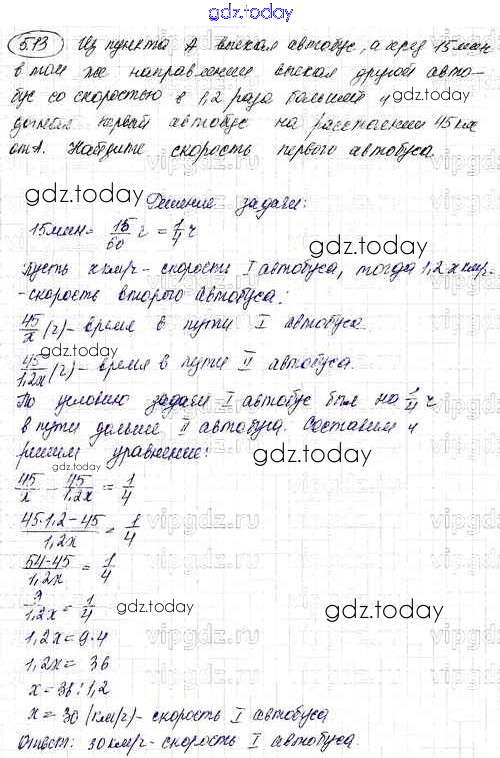 gdz.today
513 Из пункта А выехал автобус, а через 15 мин
в том же направлении выехал другой авто-
бус со скоростью в 1,2 раза большей и
догнал первый автобус на расстоянии 45 км
от А. Найдите скорость первого автобуса.
gdz.today
gdz.today
Решение задачи:
15 мин = 15/60 ч = 1/4 ч
gdz.today
Пусть x км/ч - скорость I автобуса, тогда 1,2 x км/ч-
-скорость второго автобуса;
45/x (ч) - время в пути I автобуса.
gdz.today
45/1,2x (ч) - время в пути II автобуса.
По условию задачи I автобус был на 1/4 ч
в пути дольше II автобуса. Составим и
решим уравнение:
gdz.today
gdz.today
45/x - 45/1,2x = 1/4
vipgdz.ru
(45·1,2-45)/1,2x = 1/4
vipgdz.ru
(54-45)/1,2x = 1/4
9/1,2x = 1/4
gdz.today
gdz.today
vipgdz.ru
1,2x = 9·4
1,2x = 36
x = 36:1,2
vipgdz.ru
x = 30 (км/ч) - скорость I автобуса
Ответ: 30 км/ч - скорость I автобуса.